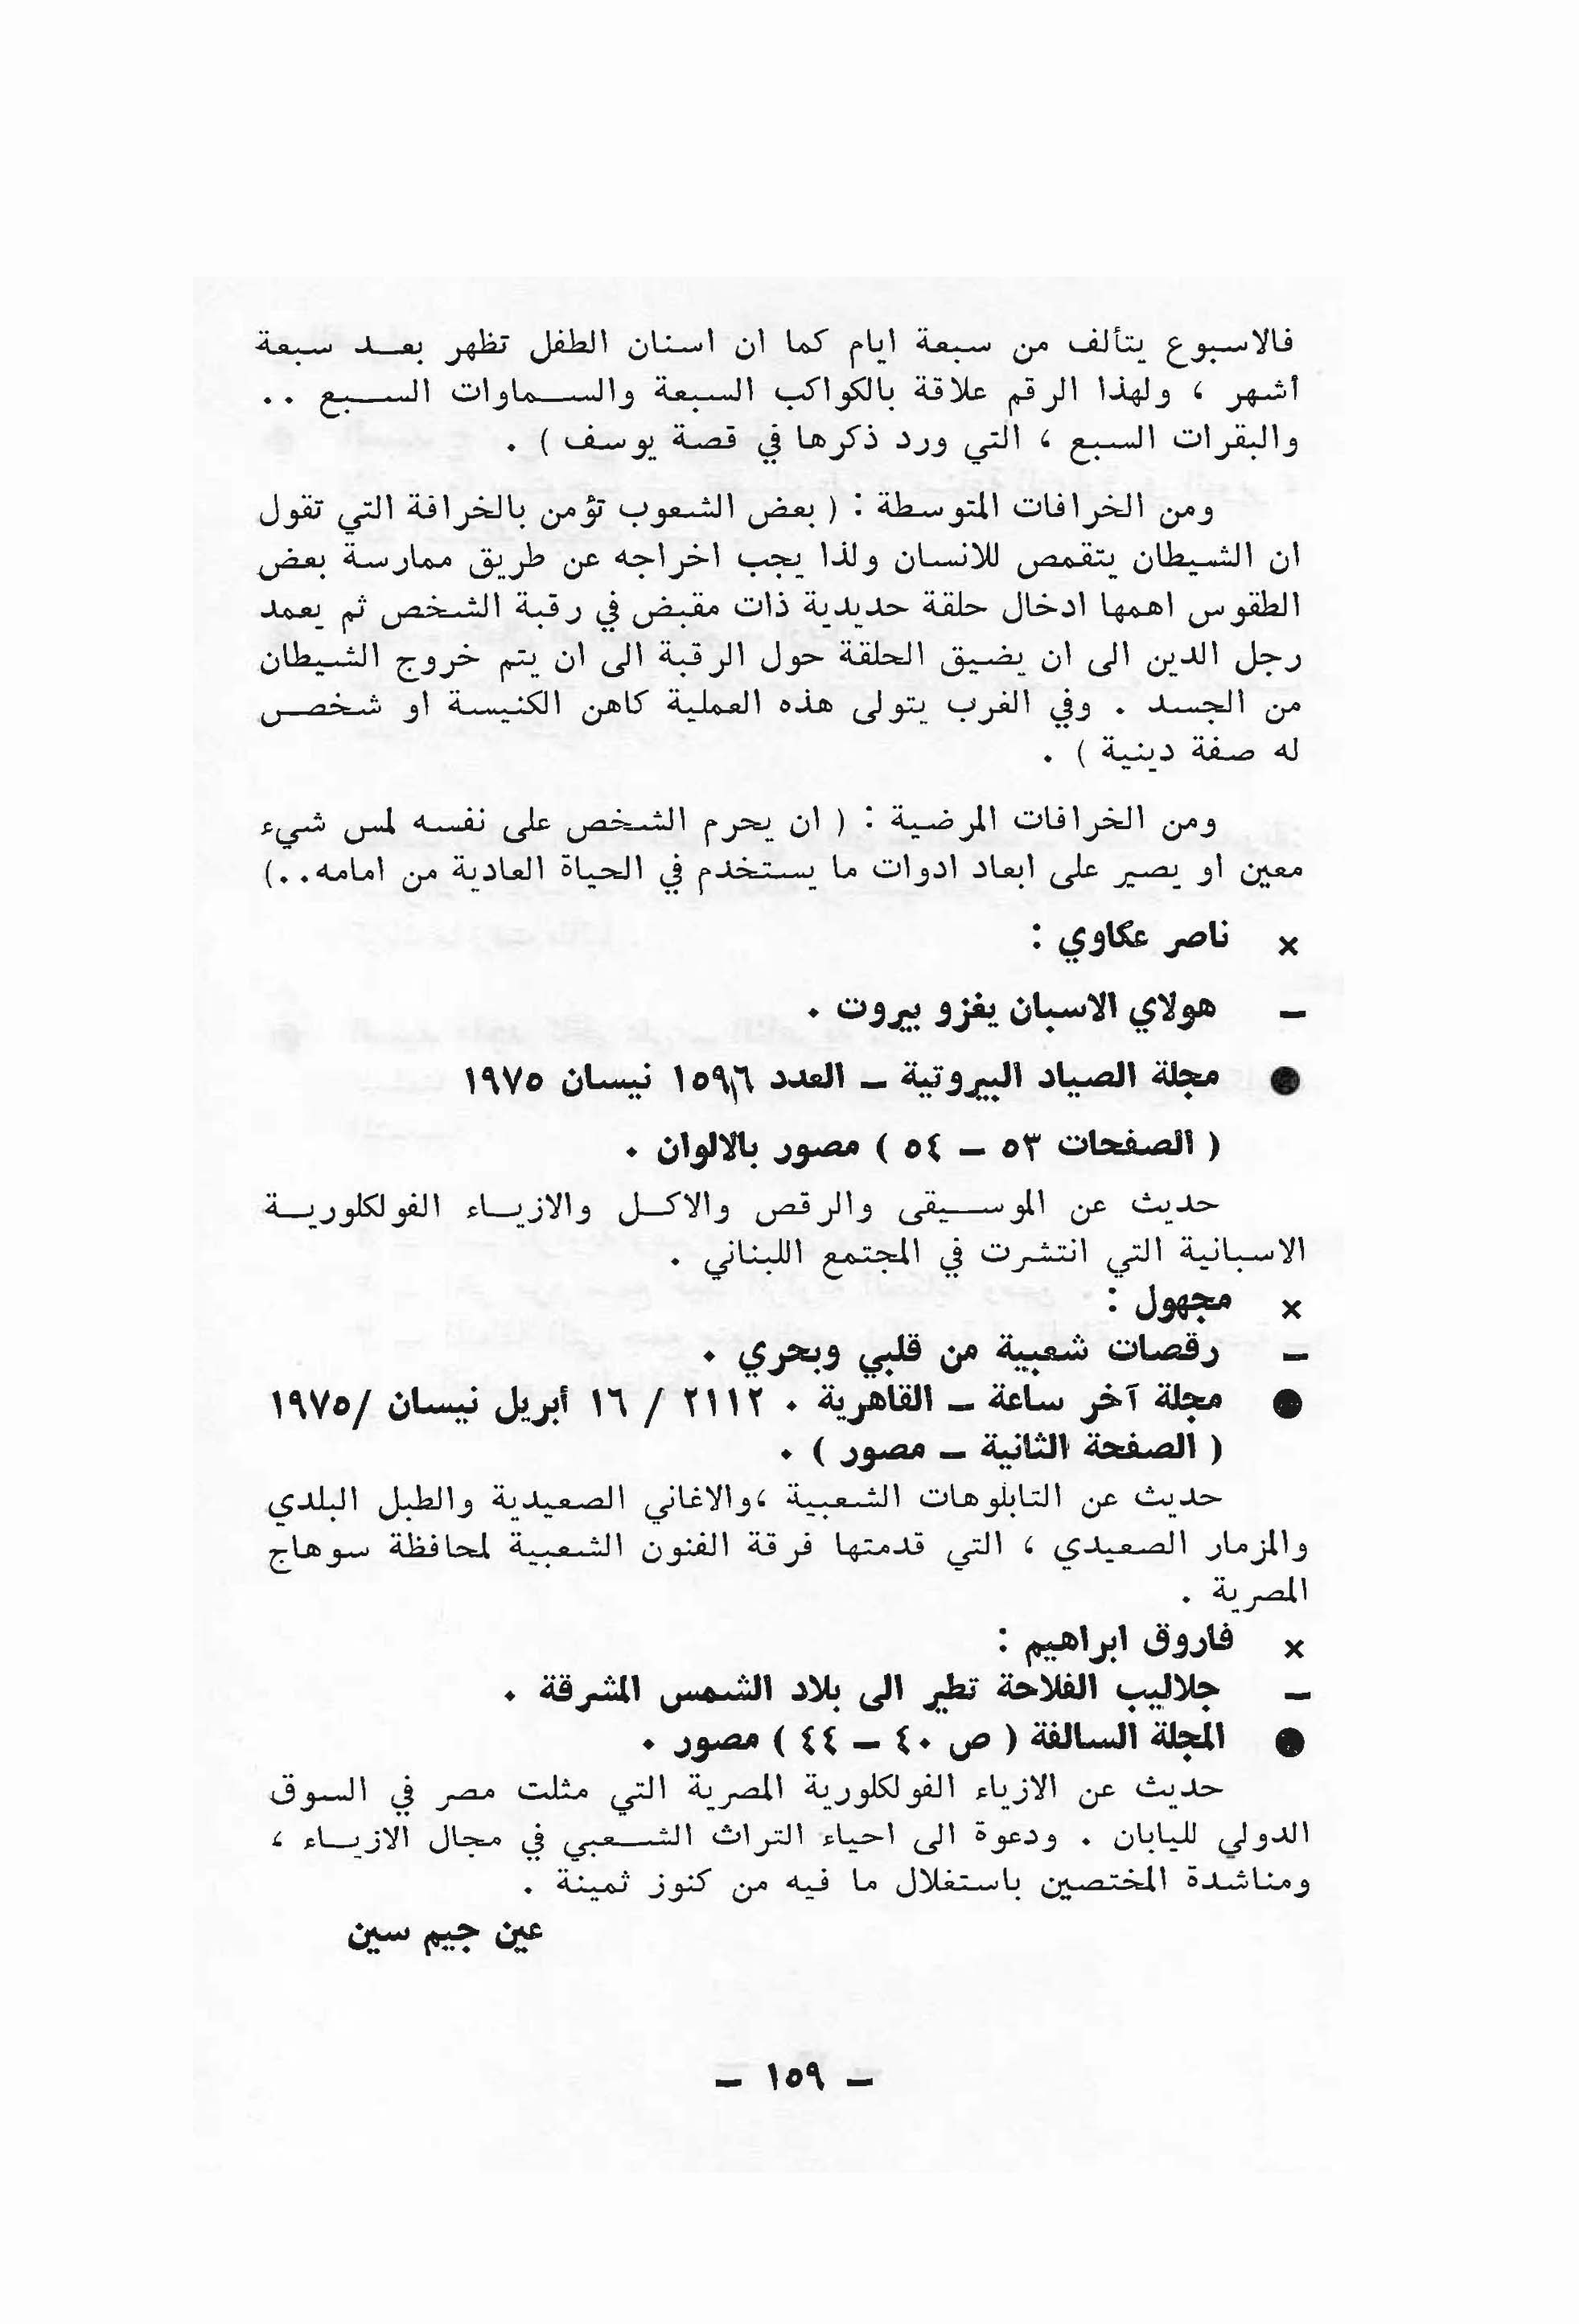 فالاسبوع يتألف من سبعة ايام كما ان اسنان الطفل تظهر بعد سبعة
أشهر ، ولهذا الرقم علاقة بالكواكب السبعة والسماوات السبع ..
والبقرات السبع ، التي ورد ذكرها في قصة يوسف ) .
ومن الخرافات المتوسطة : ( بعض الشعوب تؤمن بالخرافة التي تقول
ان الشيطان يتقمص للانسان ولذا يجب اخراجه عن طريق ممارسة بعض
الطقوس اهمها ادخال حلقة حديدية ذات مقبض في رقبة الشخص ثم يعمد
رجل الدين الى ان يضيق الحلقة حول الرقبة الى ان يتم خروج الشيطان
من الجسد . وفي الغرب يتولى هذه العملية كاهن الكنيسة او شخص
له صفة دينية ) .
ومن الخرافات المرضية : ( ان يحرم الشخص على نفسه لمس شيء
معين او يصير على ابعاد ادوات ما يستخدم في الحياة العادية من امامه..)
× ناصر عكاوي :
– هولاي الاسبان يغزو بيروت .
● مجلة الصياد البيروتية – العدد ١٥٩٦ نيسان ١٩٧٥
( الصفحات ٥٣ – ٥٤ ) مصور بالالوان .
حديث عن الموسيقى والرقص والاكل والازياء الفولكلورية
الاسبانية التي انتشرت في المجتمع اللبناني .
× مجهول :
– رقصات شعبية من قلبي وبحري .
● مجلة آخر ساعة – القاهرية . ٢١١٢ / ١٦ أبريل نيسان /١٩٧٥
( الصفحة الثانية – مصور ) .
حديث عن التابلوهات الشعبية ،والاغاني الصعيدية والطبل البلدي
والمزمار الصعيدي ، التي قدمتها فرقة الفنون الشعبية لمحافظة سوهاج
المصرية .
× فاروق ابراهيم :
– جلاليب الفلاحة تطير الى بلاد الشمس المشرقة .
● المجلة السالفة ( ص ٤٠ – ٤٤ ) مصور .
حديث عن الازياء الفولكلورية المصرية التي مثلت مصر في السوق
الدولي لليابان . ودعوة الى احياء التراث الشعبي في مجال الازياء ،
ومناشدة المختصين باستغلال ما فيه من كنوز ثمينة .
عين جيم سين
– ١٥٩ –